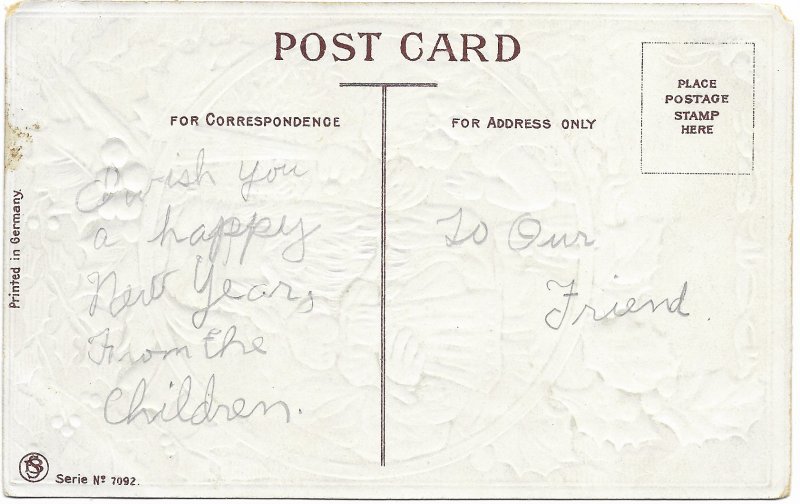 POST CARD
FOR CORRESPONDENCE
FOR ADDRESS ONLY
PLACE
POSTAGE
STAMP
HERE
I wish you
a happy
New Years,
From the
Children.
To Our
Friend.
Printed in Germany.
Serie Nº 7092.